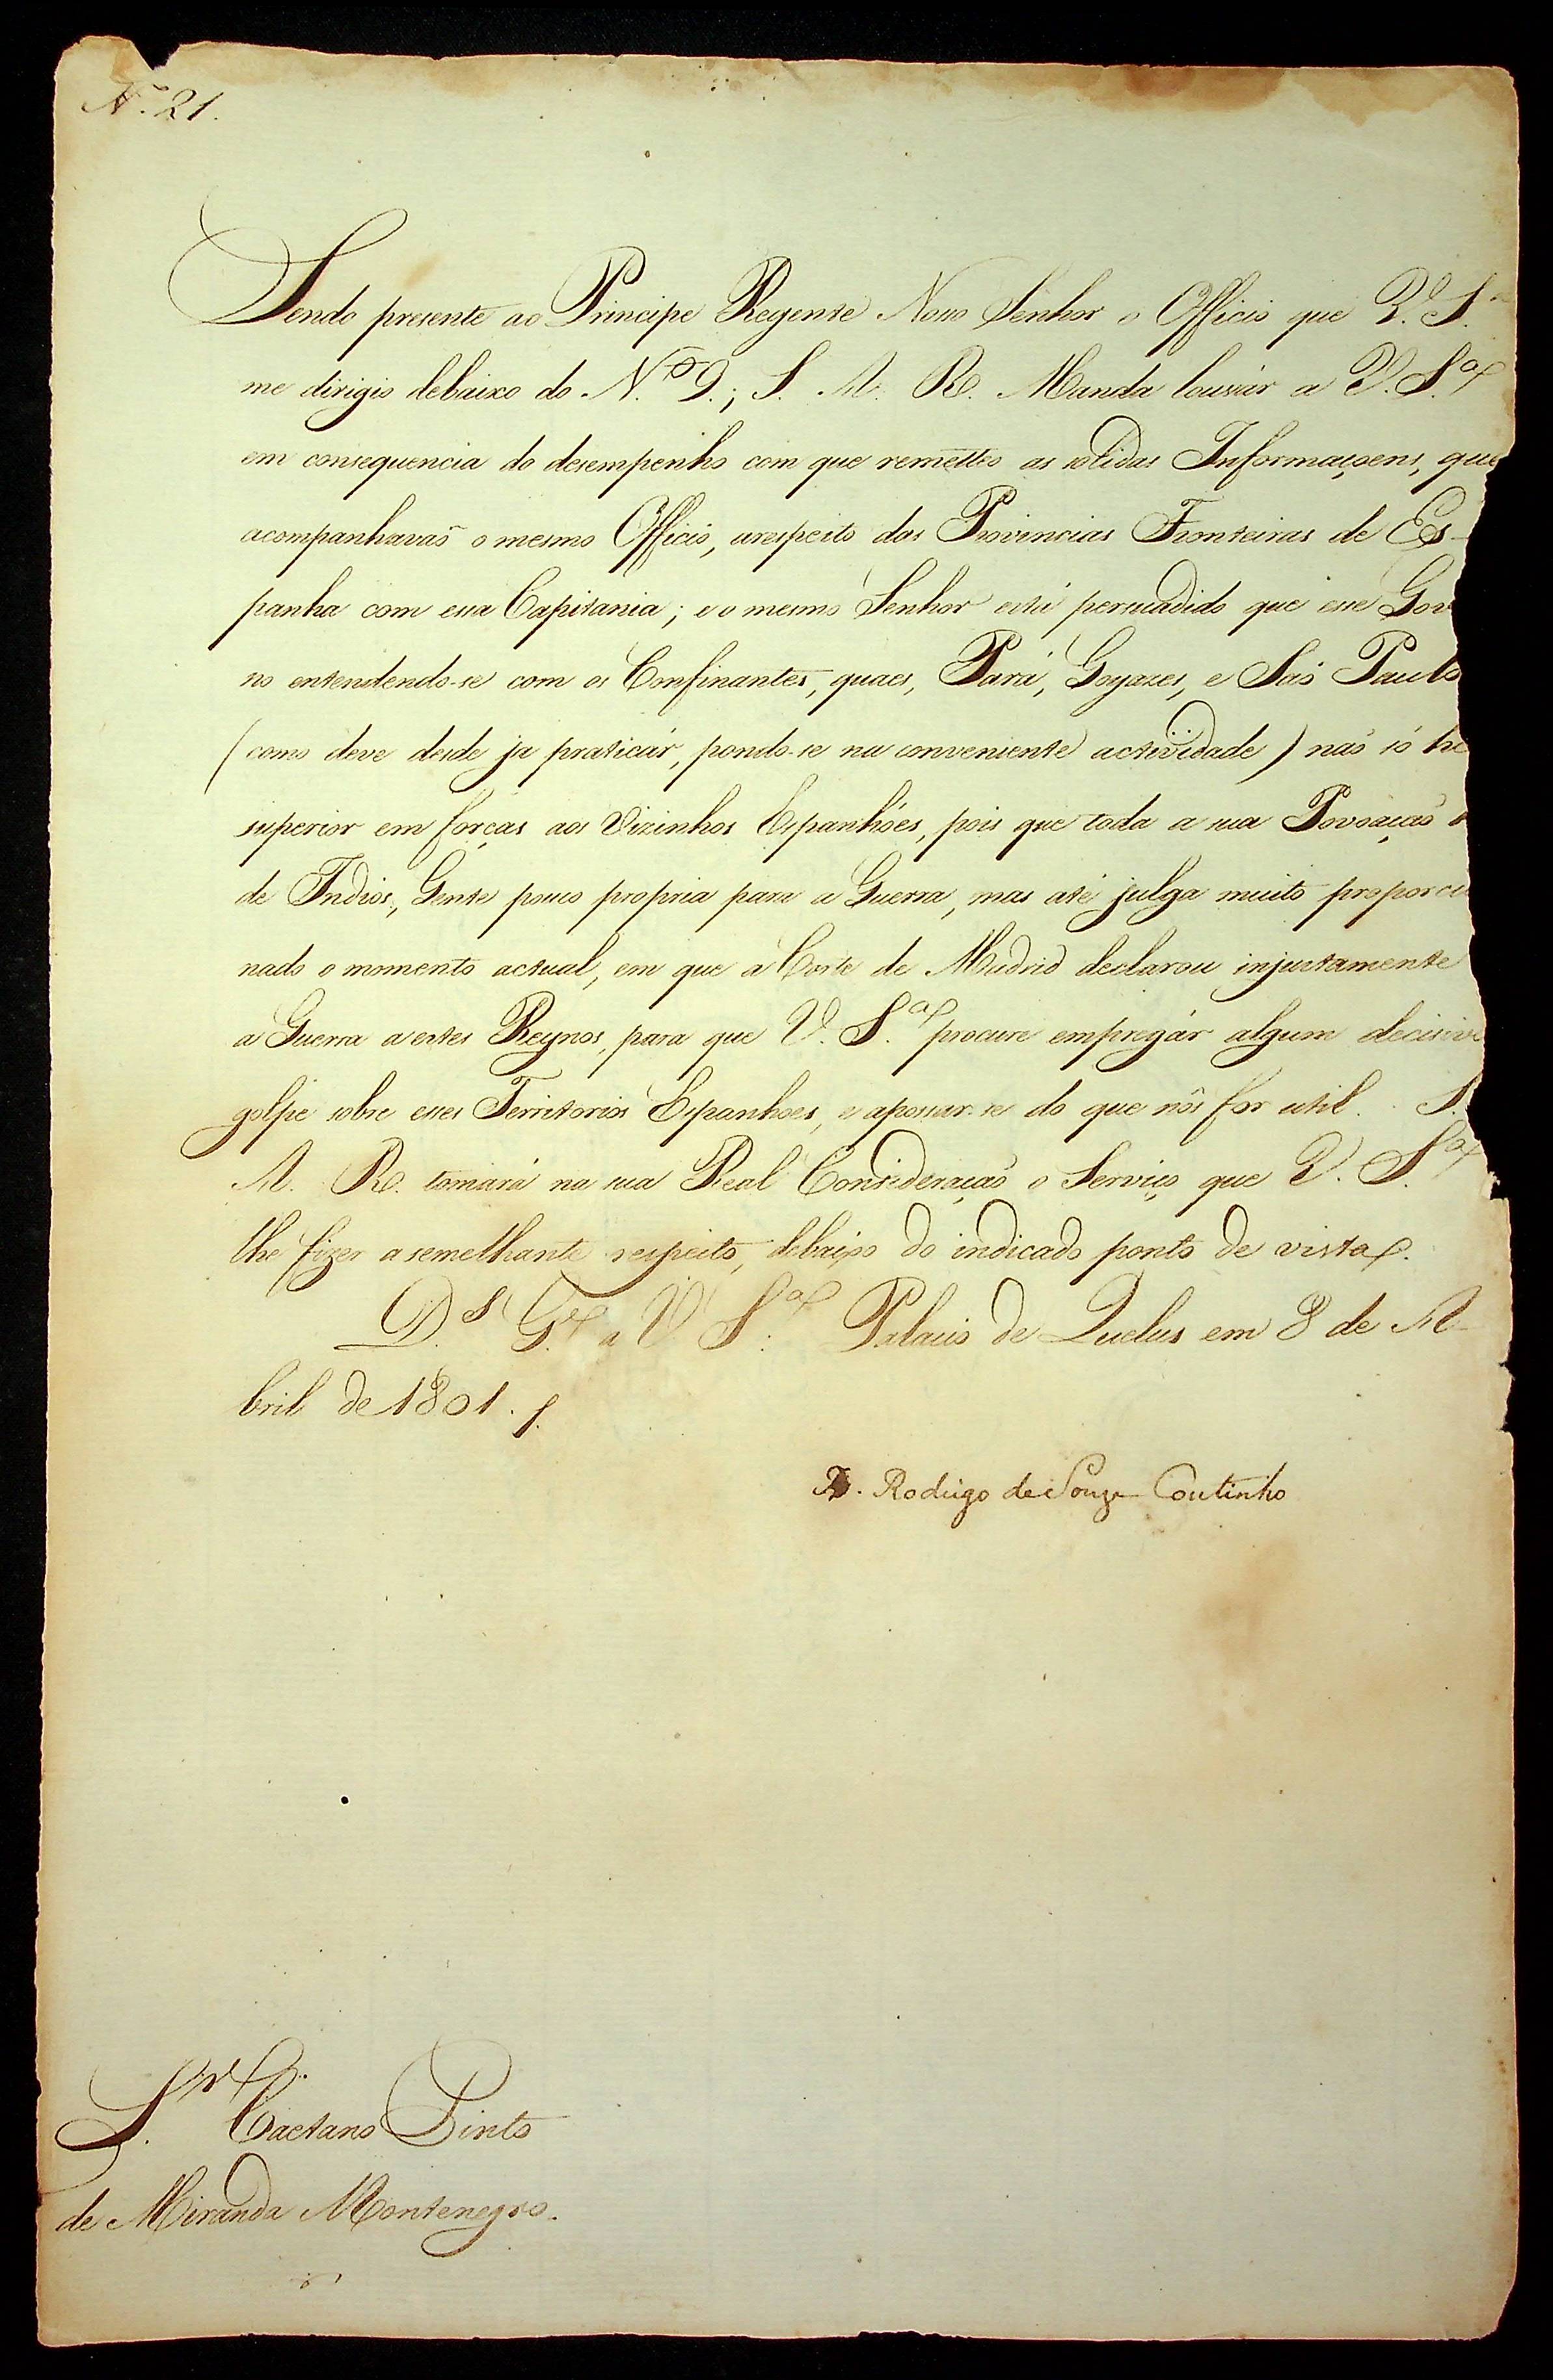 N.º 21.
Sendo presente ao Principe Regente Nosso Senhor o Officio que V. S.ª
me dirigio debaixo do N.º 9.; S. A. R. Manda louvár a V. S.ª
em consequencia do desempenho com que remetteo as solidas Informaçoens, que
acompanhavaõ o mesmo Officio, arespeito das Provincias Fronteiras de Es-
panha com essa Capitania; e o mesmo Senhor está persuadido que esse Gov
no entendendo-se com os Confinantes, quaes, Pará, Goyazes, e Saõ Paulo
(como deve desde ja praticár, pondo-se na conveniente actividade) naõ só he
superior em forças aos Vizinhos Espanhóes, pois que toda a sua Povoaçaõ
de Indios, Gente pouco propria para a Guerra, mas até julga muito proporcio
nado o momento actual, em que a Corte de Madrid declarou injustamente
a Guerra a estes Reynos, para que V. S.ª procure empregár algum decisivo
golpe sobre esses Territorios Espanhoes, e apossar-se do que nós for util. S.
A. R. tomará na sua Real Consideraçaõ o Serviço que V. S.ª
lhe fizer a semelhante respeito, debaixo do indicado ponto de vista.
D.s G.e a V. S.ª Palacio de Queluz em 8 de A-
bril de 1801.
D. Rodrigo de Souza Coutinho
S.r Caetano Pinto
de Miranda Montenegro.